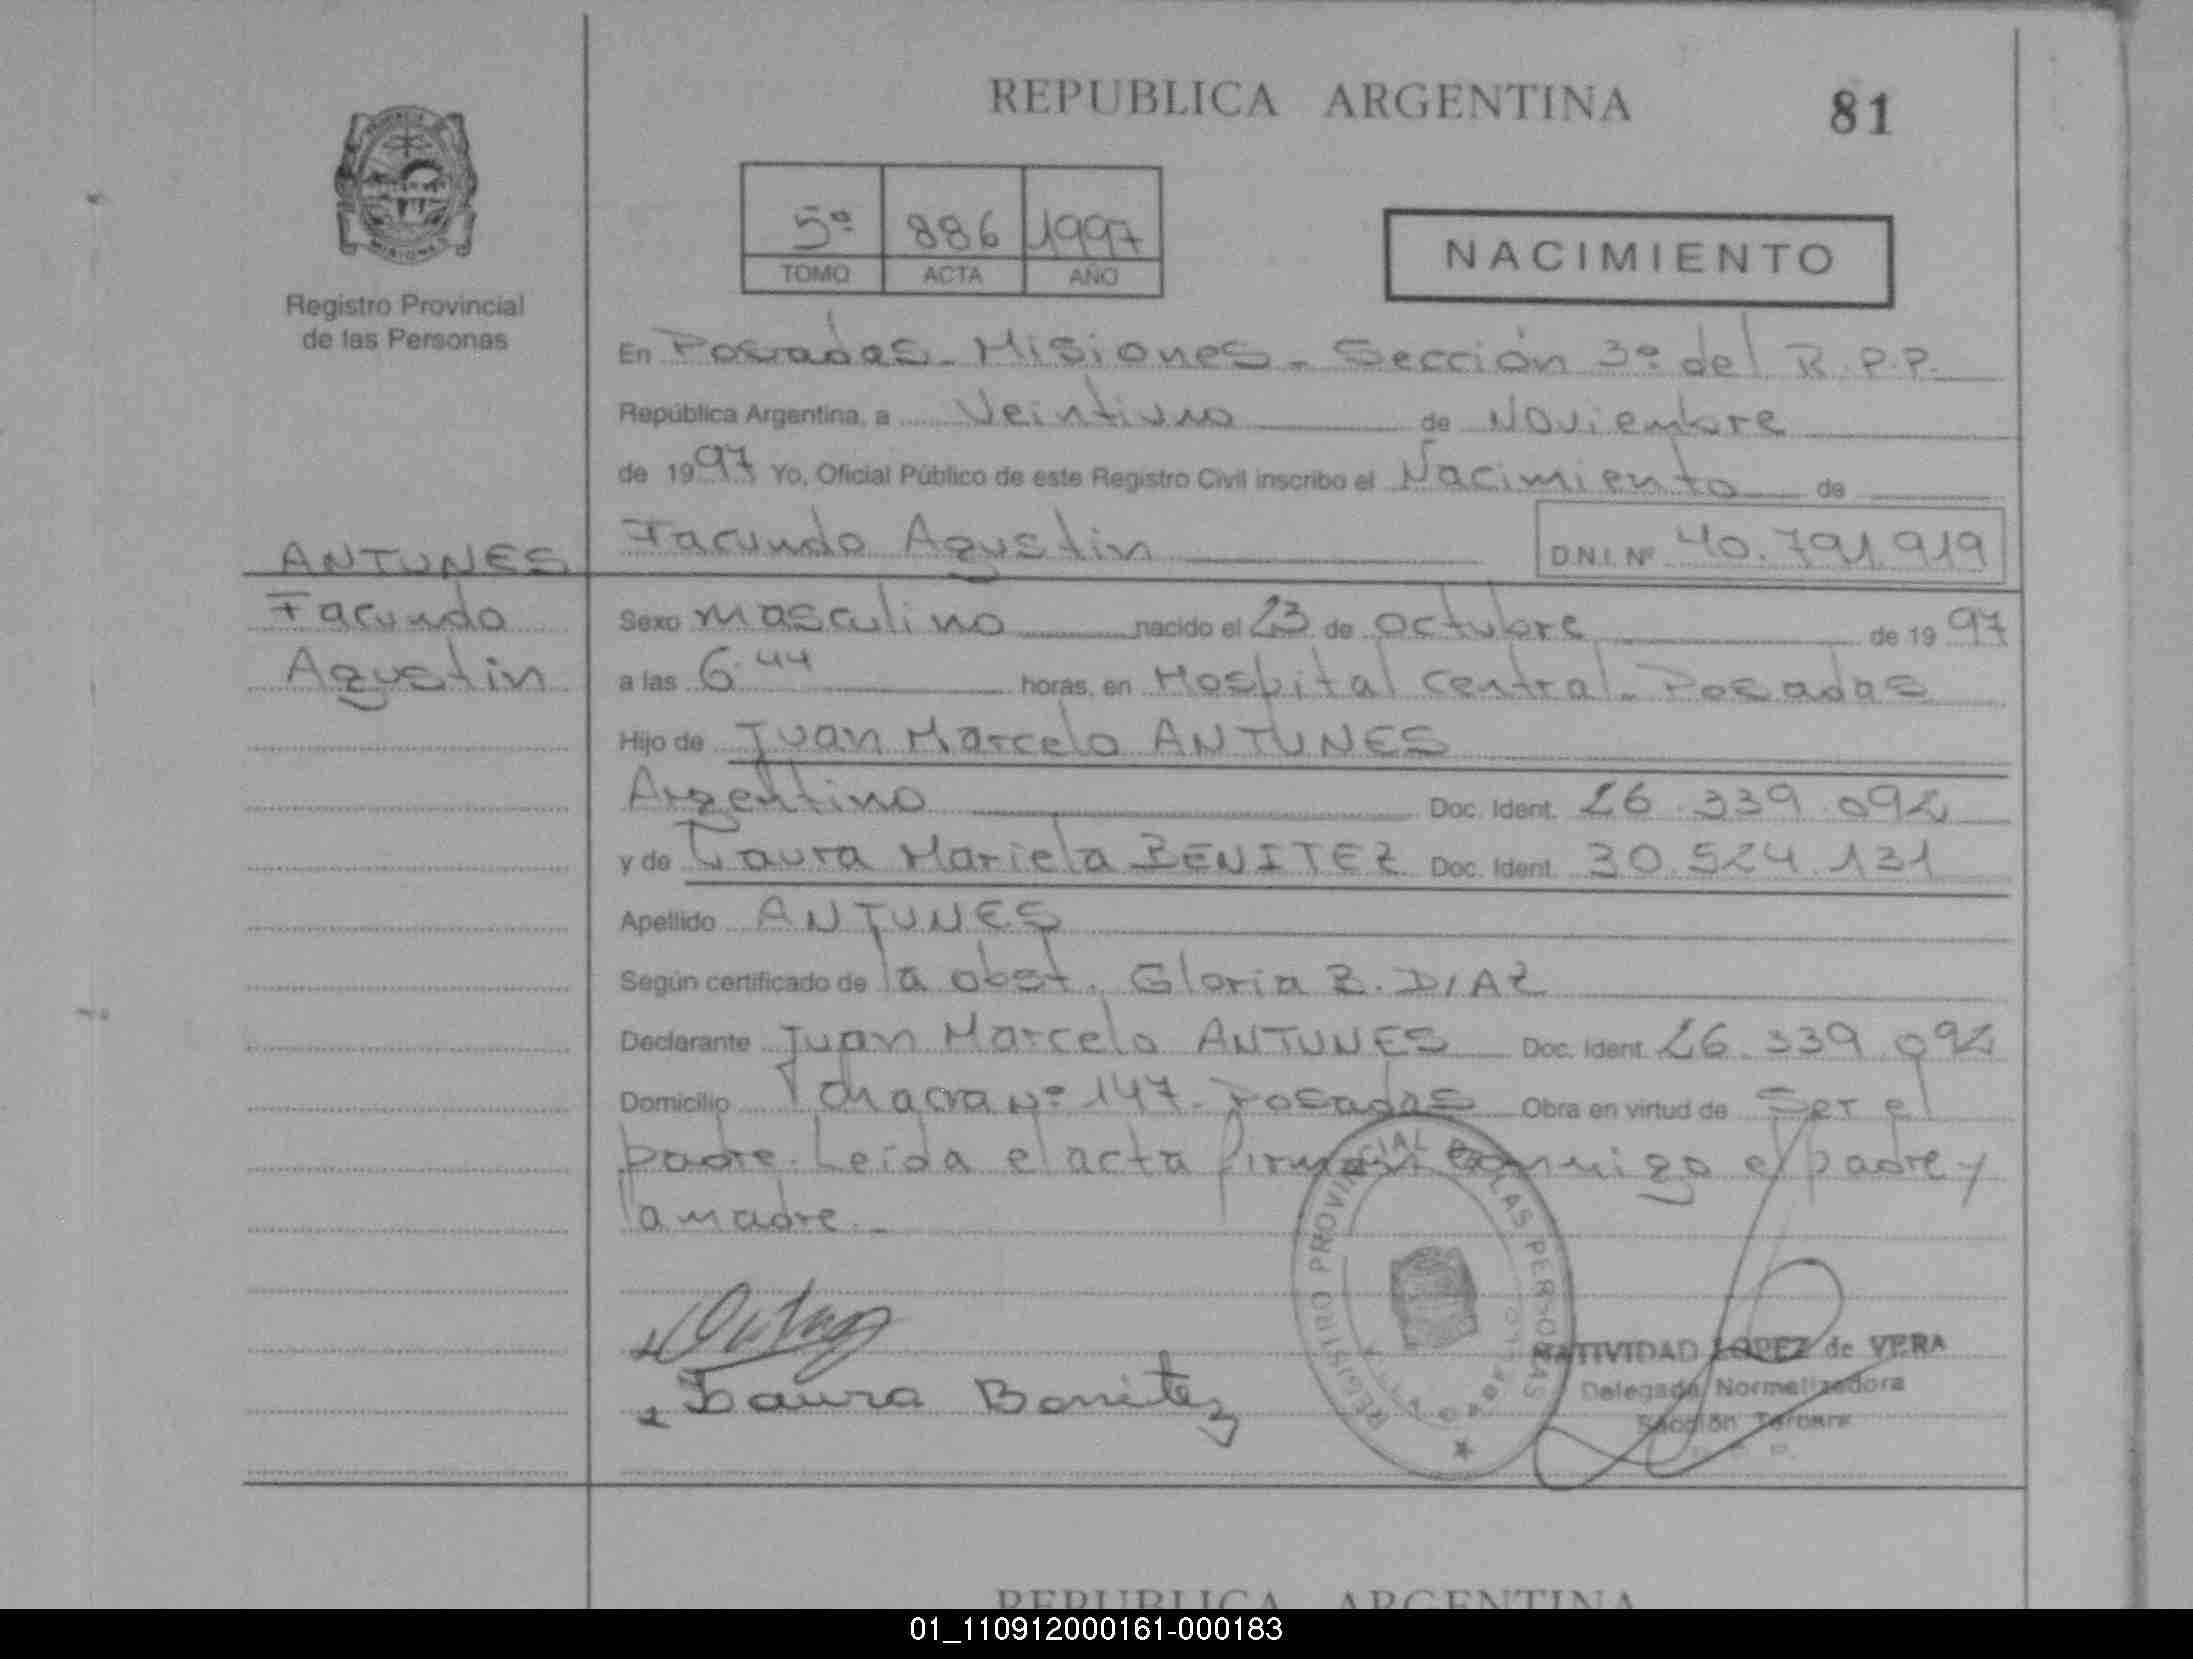 REPUBLICA ARGENTINA
81
5º 886 1997
TOMO ACTA AÑO
NACIMIENTO
Registro Provincial
de las Personas
En Posadas - Misiones - Sección 3º del R.P.P.
República Argentina, a Veintiuno de Noviembre
de 1997 Yo, Oficial Público de este Registro Civil inscribo el Nacimiento de
Facundo Agustin D.N.I. Nº 40.791.919
ANTUNES
Facundo
Agustin
Sexo masculino nacido el 23 de octubre de 1997
a las 6.44 horas, en Hospital Central - Posadas
Hijo de Juan Marcelo ANTUNES
Argentino Doc. Ident. 26.339.092
y de Laura Mariela BENITEZ Doc. Ident. 30.524.131
Apellido ANTUNES
Según certificado de la obst. Gloria B. DIAZ
Declarante Juan Marcelo ANTUNES Doc. Ident. 26.339.092
Domicilio chacra Nº 147 - Posadas Obra en virtud de Ser el
padre. Leída el acta firman conmigo el padre y
la madre.-
Laura Benitez
REGISTRO PROVINCIAL DE LAS PERSONAS
NATIVIDAD LOPEZ de VERA
Delegada Normalizadora
Sección Tercera
REPUBLICA ARGENTINA
01_110912000161-000183